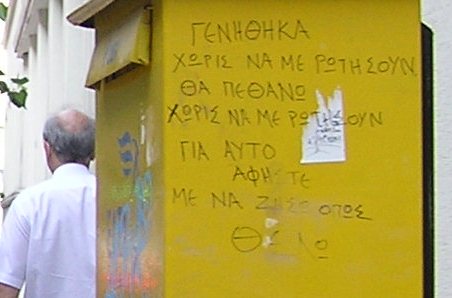 ΓΕΝΗΘΗΚΑ
ΧΩΡΙΣ ΝΑ ΜΕ ΡΩΤΗΣΟΥΝ
ΘΑ ΠΕΘΑΝΩ
ΧΩΡΙΣ ΝΑ ΜΕ ΡΩΤΗΣΟΥΝ
ΓΙΑ ΑΥΤΟ
ΑΦΗΣΤΕ
ΜΕ ΝΑ ΖΗΣΩ ΟΠΩΣ